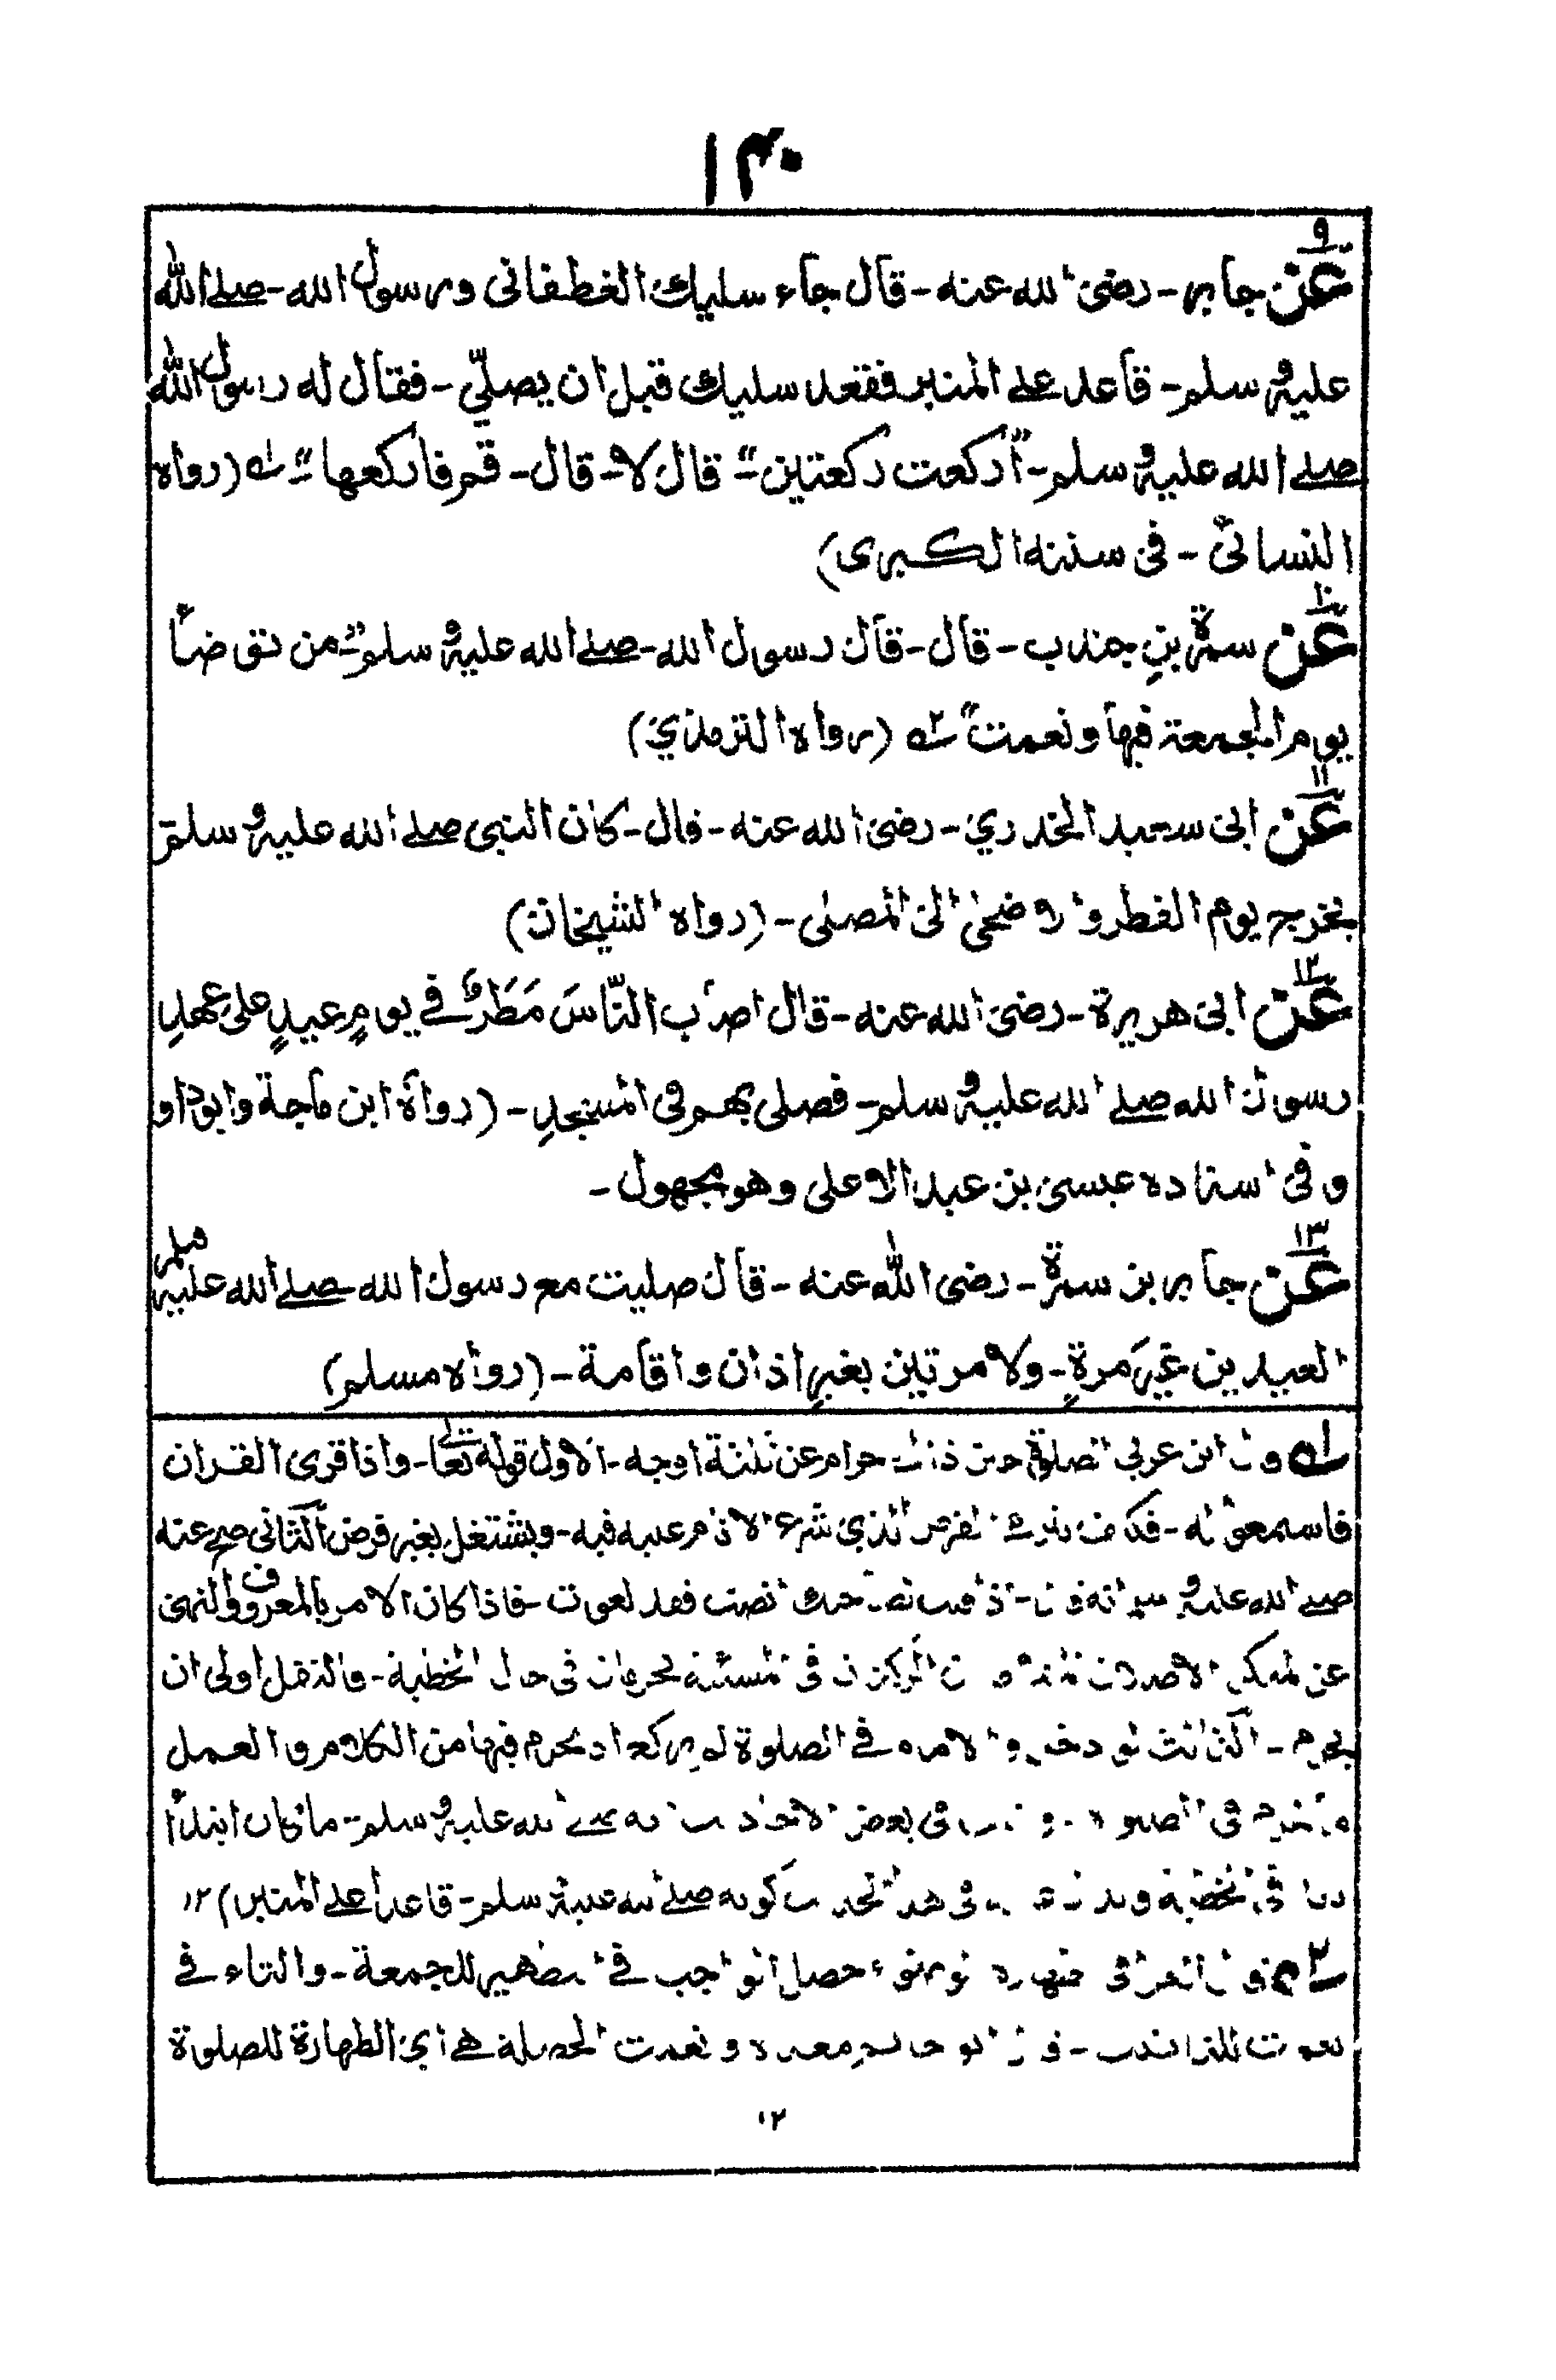 ١٣٠
٩
عن جابر - رضى الله عنه - قال جاء سليك الغطفانى ورسول الله - صلے الله
عليه وسلم - قاعد علے المنبر فقعد سليك قبل ان يصلّي - فقال له رسول الله
صلے الله عليه وسلم - "أركعت ركعتين" - قال لا - قال - قم فاركعها" - له (رواه
النسائى - فى سننه الكبرى)
١٠
عن سمرة بنِ جندب - قال - قال رسول الله - صلے الله عليه وسلم - "من توضأ
يوم الجمعة فبها ونعمت" ٢ه (رواه الترمذي)
١١
عن ابى سعيد الخدري - رضى الله عنه - قال - كان النبى صلے الله عليه وسلم
يخرج يوم الفطر والاضحىٰ الى المصلى - (رواه الشيخان)
١٢
عن ابى هريرة - رضى الله عنه - قال اصاب النّاسَ مَطَرٌ فے يومٍ عيدٍ على عهدِ
رسول الله صلے الله عليه وسلم - فصلى بهم فى المسجدِ - (رواه ابن ماجة وابوداو
وفى اسناده عيسى بن عبد الاعلى وهو مجهول -
١٣
عن جابر بن سمرة - رضى الله عنه - قال صليت مع رسول الله صلے الله عليه وسلم
العيدين غيرَ مرةٍ - ولا مرتين بغيرِ اذان واقامة - (رواه مسلم)
له قال ابن عربى الصلوة حرام عن ثلثة اوجه - الاول قوله تعالے - واذا قرى القران
فاستمعوا له - فكيف يترك الفرض الذي شرع الامام عليه فيه - ويشتغل بغير فرض الثانى صح عنه
صلے الله عليه وسلم انه قال - اذا قلت لصاحبك انصت فقد لغوت - فاذا كان الامر بالمعروف والنهى
عن المنكر فى المسئلة يحرمان فى حال الخطبة - فالنفل اولى ان
يحرم - الثالث لو دخل والامام فے الصلوة لم يركع اذ يحرم فيها من الكلام والعمل
ما يحرم فى الصلوة بعض صلے الله عليه وسلم - ما كان ابتدأ
فى الخطبة هذا الحديث كونه صلے الله عليه وسلم - قاعداً علے المنبر) ١٢
٢ه قال العراقى حصل الواجب فے التطهير للجمعة - والتاء فے
نعمت للتانيث - قال معناه ونعمت الخصلة هے أي الطهارة للصلوة
١٢